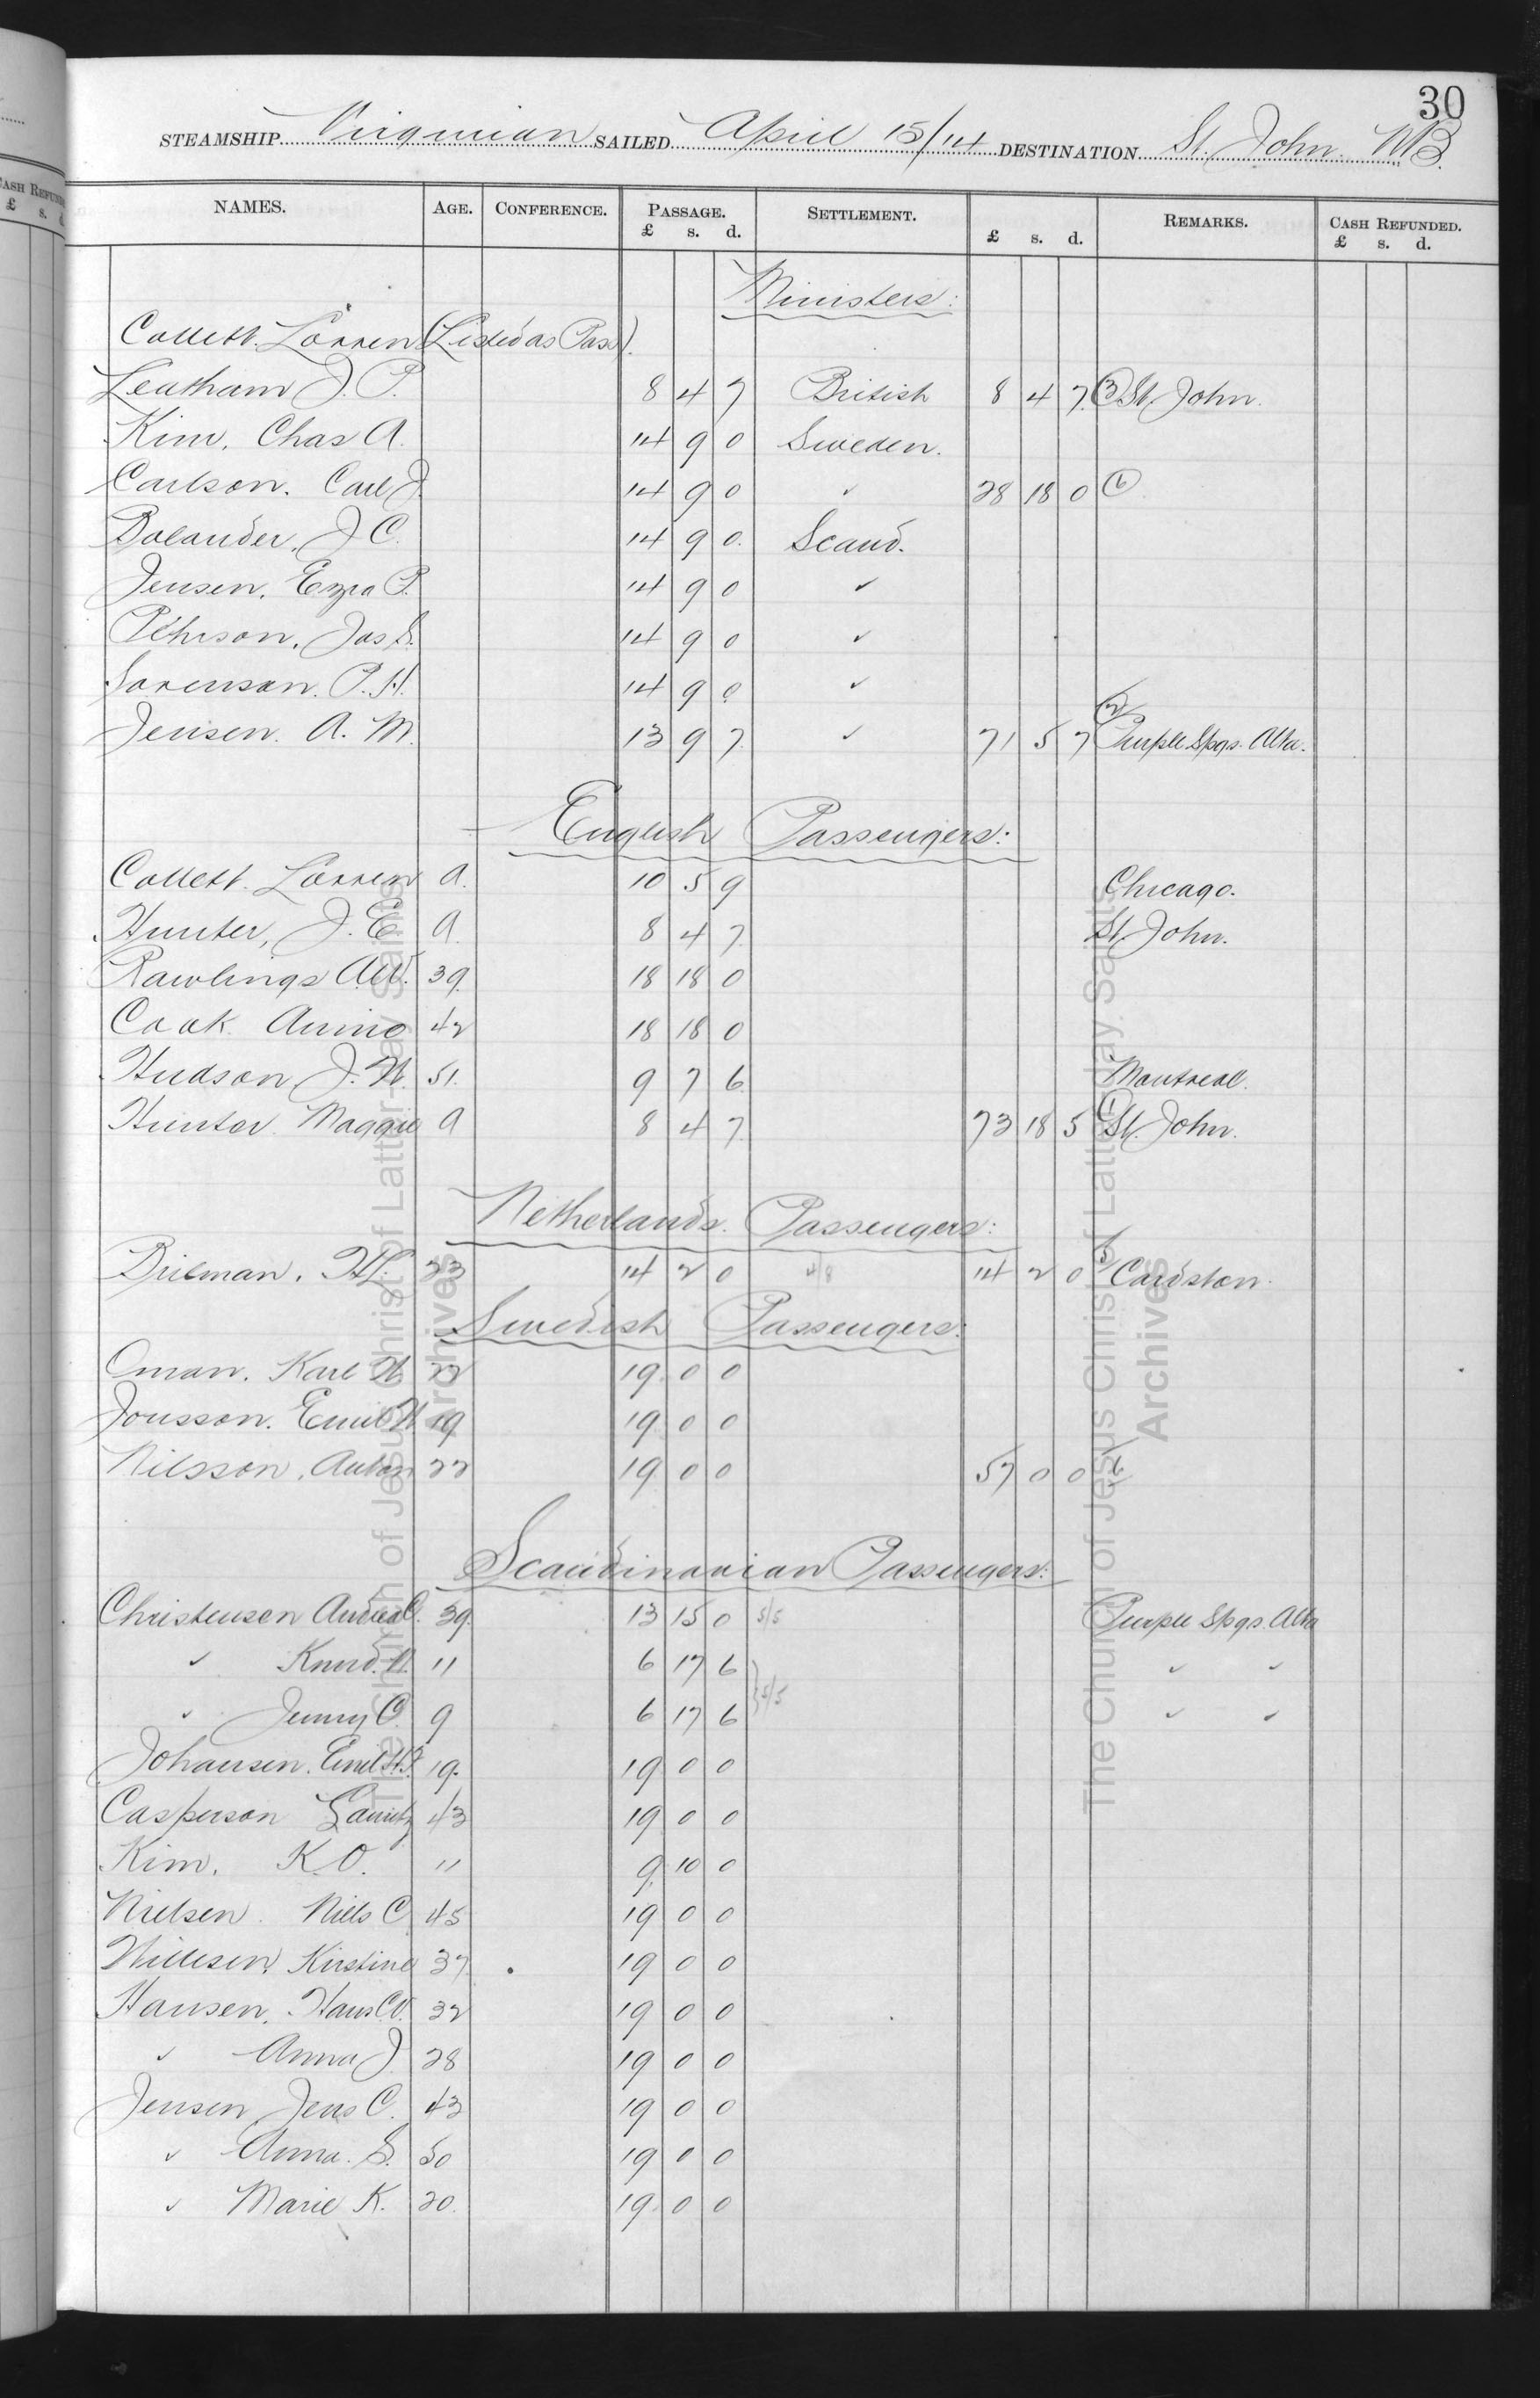 30
STEAMSHIP Virginian SAILED April 15/14 DESTINATION St. John NB.
NAMES. AGE. CONFERENCE. PASSAGE. SETTLEMENT. REMARKS. CASH REFUNDED.
£ s. d. £ s. d. £ s. d.
Ministers:
Collett. Lorren (Listed as Pass).
Leatham J. P. 8 4 7 British 8 4 7 (3) St. John.
Kim, Chas A. 14 9 0 Sweden.
Carlson. Carl J. 14 9 0 ✓ 28 18 0 (6)
Bolander, J C. 14 9 0. Scand.
Jensen, Ezra P. 14 9 0 ✓
Pehrson, Jas S. 14 9 0 ✓
Sorenson. P. H. 14 9 0 ✓
(2)
Jensen. A. M. 13 9 7. ✓ 71 5 7 Purple Spgs. Alta.
English Passengers:
Collett. Lorren A. 10 5 9 Chicago.
Hunter, J. E. A. 8 4 7. St. John.
Rawlings A.W. 39. 18 18 0
Cook. Annie 42 18 18 0
Hudson J. W. 51. 9 7 6. Montreal.
Hunter. Maggie A 8 4 7. 73 18 5 St. John.
Netherlands. Passengers:
Brieman. H.L. 23 14 2 0 4/8 14 2 0 Cardston.
Swedish Passengers:
Oman. Karl W. 22 19 0 0
Jonsson. Emil W 19 19 0 0
Nilsson, Anton 22 19 0 0 57 0 0 (6)
Scandinavian Passengers:
Christensen Andrea C. 39. 13 15 0 5/5 Purple Spgs. Alta
✓ Knud. 11 6 17 6 ✓ ✓
} 5/5
✓ Jenny C. 9 6 17 6 ✓ ✓
Johansen. Emil H.F. 19. 19 0 0
Casperson Lauritz 43 19 0 0
Kim. K.O. 11 9 10 0
Nielsen. Niels C 45 19 0 0
Willesen, Kirstine 37. 19 0 0
Hansen. Hans C.V. 32 19 0 0
✓ Anna J. 28 19 0 0
Jensen Jens C. 43 19 0 0
✓ Anna. S. 50 19 0 0
✓ Marie K. 20. 19 0 0
The Church of Jesus Christ of Latter-day Saints
Archives
The Church of Jesus Christ of Latter-day Saints
Archives
CASH REFUND
£ s. d.